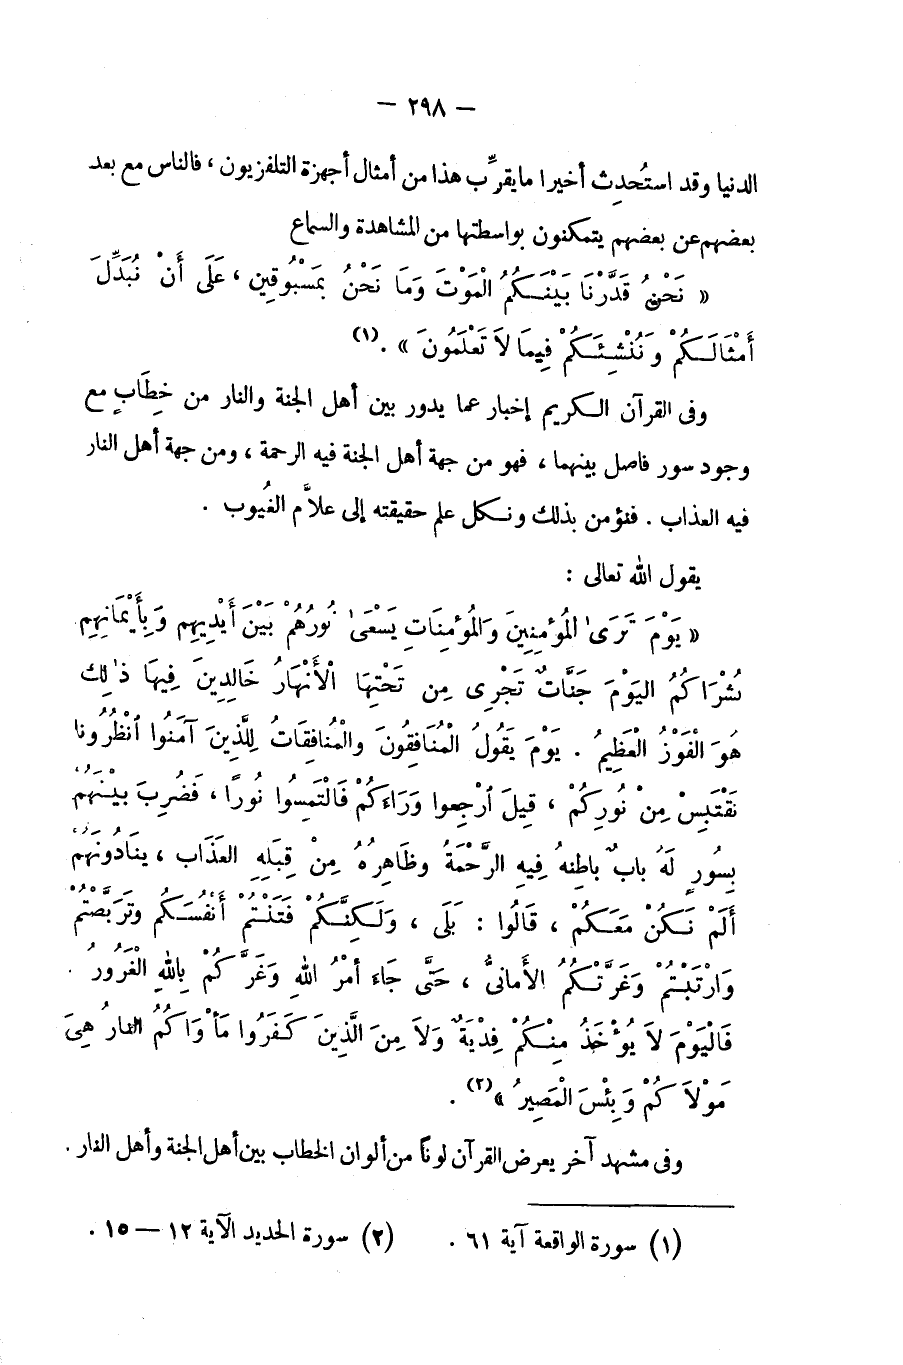 — ٢٩٨ —
الدنيا وقد استُحدِث أخيرا ما يقرِّب هذا من أمثال أجهزة التلفزيون ، فالناس مع بعد
بعضهم عن بعضهم يتمكنون بواسطتها من المشاهدة والسماع
« نَحْنُ قَدَّرْنَا بَيْنَـكُمُ الْمَوْتَ وَمَا نَحْنُ بِمَسْبُوقِين ، عَلَى أَنْ نُبَدِّلَ
أَمْثَالَـكُمْ وَنُنْشِئَـكُمْ فِيمَا لاَ تَعْلَمُونَ » .(١)
وفى القرآن الـكريم إخبار عما يدور بين أهل الجنة والنار من خطَابٍ مع
وجود سور فاصل بينهما ، فهو من جهة أهل الجنة فيه الرحمة ، ومن جهة أهل النار
فيه العذاب . فنؤمن بذلك ونـكل علم حقيقته إلى علاَّم الغُيوب .
يقول الله تعالى :
« يَوْمَ تَرَىٰ الْمُؤمِنِينَ وَالمُؤمِنَاتِ يَسْعَىٰ نُورُهُمْ بَيْنَ أَيْدِيهِم وَبِأَيْمَانِهِم
بُشْرَاكُمُ اليَوْمَ جَنَّاتٌ تَجْرِى مِن تَحْتِهَا الْأَنْهَارُ خَالِدِينَ فِيهَا ذٰلِكَ
هُوَ الْفَوْزُ الْعَظِيمُ . يَوْمَ يَقُولُ الْمُنَافِقُونَ والْمُنافِقَاتُ لِلَّذِينَ آمَنُوا ٱنْظُرُونا
نَقْتَبِسْ مِنْ نُورِكُمْ ، قِيلَ ٱرْجِعوا وَرَاءَكُمْ فَالْتَمِسُوا نُوراً ، فَضُرِبَ بيْنَهُمْ
بِسُورٍ لَهُ بابٌ باطِنهُ فِيهِ الرَّحْمَةُ وظَاهِرُهُ مِنْ قِبَلِهِ العَذَاب ، ينَادُونَهُمْ
أَلَمْ نَـكُنْ مَعَـكُمْ ، قَالُوا : بَلَى ، وَلَـكِنَّـكُمْ فَتَنْتُمْ أَنْفُسَـكُم وتَرَبَّصتُمْ
وَارْتَبْتُمْ وَغَرَّتْـكُمُ الأَمانىُّ ، حَتَّى جَاء أَمْرُ اللهِ وَغَرَّكُمْ بِاللهِ الغَرُورُ .
فَالْيَوْمَ لاَ يُؤْخَذُ مِنْـكُمْ فِدْيَةٌ وَلاَ مِنَ الَّذِينَ كَفَرُوا مَأْوَاكُمُ النارُ هِىَ
مَوْلاَكُمْ وَبِئْسَ الْمَصِيرُ »(٢) .
وفى مشهد آخر يعرض القرآن لوناً من ألوان الخطاب بين أهل الجنة وأهل النار .
(١) سورة الواقعة آية ٦١ . (٢) سورة الحديد الآية ١٢ — ١٥ .